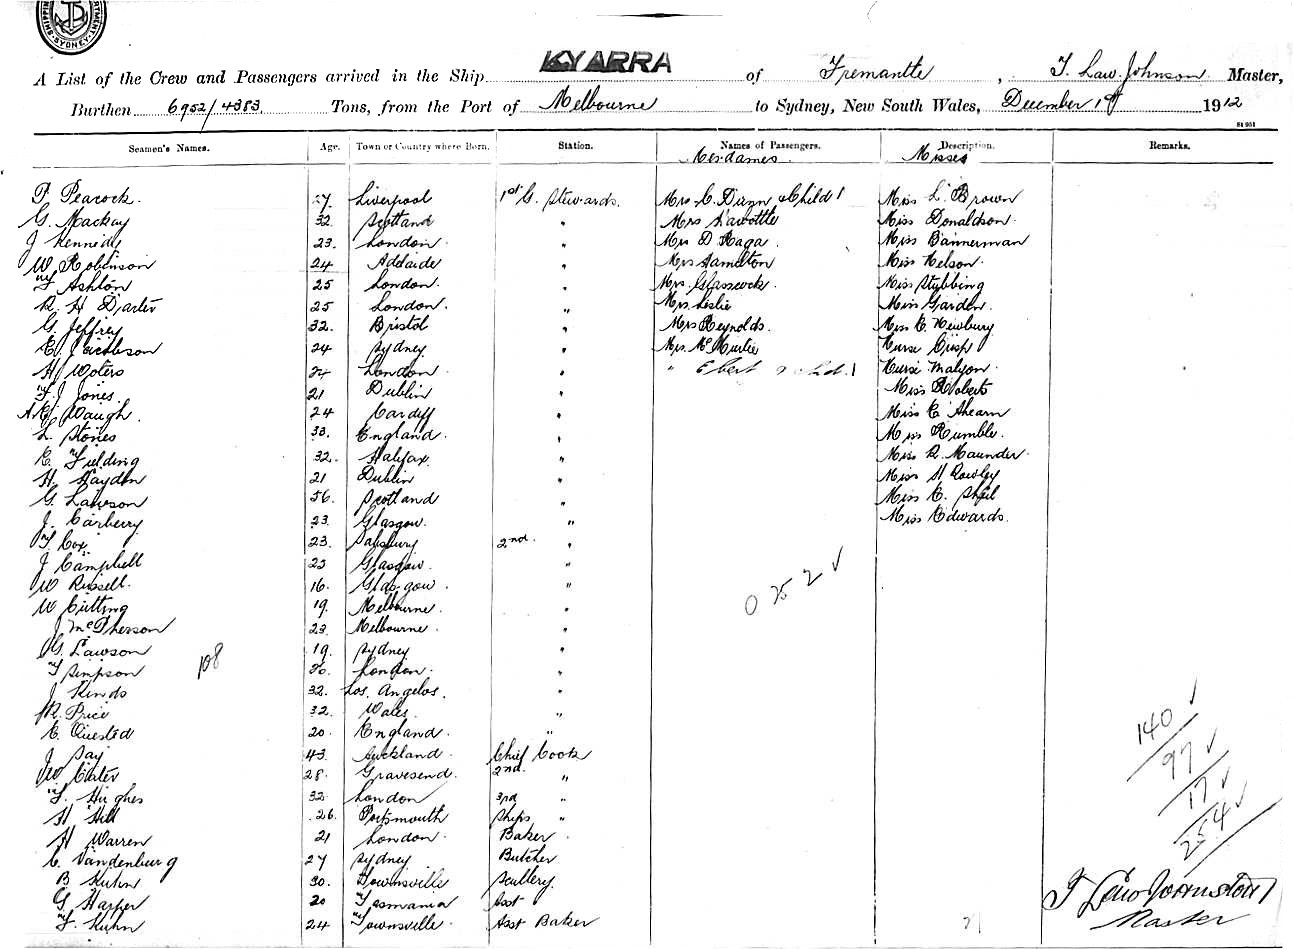 SHIPPING
SYDNEY
A List of the Crew and Passengers arrived in the Ship KYARRA of Fremantle, T. Law. Johnson Master,
Burthen 6952/4383 Tons, from the Port of Melbourne to Sydney, New South Wales, December 19 1912
Seamen's Names. Age. Town or Country where Born. Station. Names of Passengers. Description. Remarks.
Mesdames. Misses
P. Peacock. 27 Liverpool 1st C. Stewards. Mrs C. Dunn & Child 1 Miss L. Brown
G. Mackay 32 Scotland " Mrs Miss Donaldson
J Kennedy 23. London " Mrs D Raga Miss Bannerman
W Robinson 24 Adelaide " Mrs Hamilton Miss Nelson
F Ashton 25 London " Mrs Glasscock Miss Stubbing
R. H Darter 25 London " Mrs Leslie Miss Garden
G. Jeffrey 32. Bristol " Mrs Reynolds. Miss E Newbury
E. Jacobson 24 Sydney " Mrs. McMurtie Nurse Crisp
H Woters 24 London " " Ebert & chd. 1 Nurse Malyon
F. J Jones. 21 Dublin " Miss Roberts
A. E. Waugh. 24 Cardiff " Miss E Ahearn
L. Stones 33. England " Miss Rumble.
E. Fielding 32. Halifax " Miss R. Maunder
H. Haydon 21 Dublin " Miss H Rowley
G. Lawson 56. Scotland " Miss E. Sheil
J. Carberry 23 Glasgow. " Miss Edwards.
T. Cox 23. Salisbury 2nd. "
J Campbell 23 Glasgow. "
W Russell. 16. Glasgow. "
W Cutting 19. Melbourne "
J McPherson 23 Melbourne. "
G. Lawson 19 Sydney "
T Simpson London "
J Hinds 32. Los Angelos. "
R. Price 32. Wales. "
E. Quested 20. England "
J Day 43. Auckland. Chief Cook
W Carter 28. Gravesend. 2nd. "
F. Hughes 32 London 3rd "
H Hill 26. Portsmouth Ships "
H Warren 21 London Baker
C. Vandenburg 27 Sydney Butcher
B Kuhn 30. Townsville Scullery
G Harper 20 Tasmania Asst
F. Kuhn 24 Townsville Asst Baker
108
0 252 ✓
140 ✓
97 ✓
17 ✓
254 ✓
T Law Johnston
Master